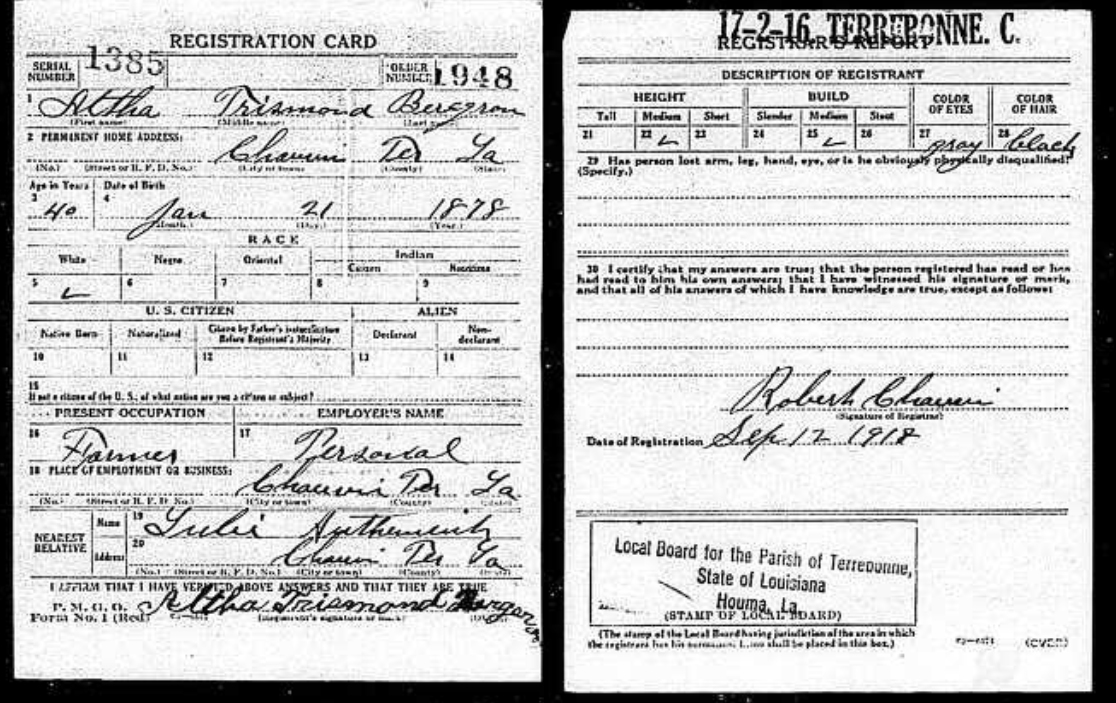 REGISTRATION CARD
SERIAL NUMBER 1385 ORDER NUMBER 1948
1 Altha Trismond Bergeron
(First name) (Middle name) (Last name)
2 PERMANENT HOME ADDRESS:
Chauvin Ter La
(No.) (Street or R. F. D. No.) (City or town) (County) (State)
Age in Years Date of Birth
3 40 4 Jan 21 1878
(Month.) (Day.) (Year.)
RACE
White Negro Oriental Indian
Citizen Noncitizen
5 6 7 8 9
U. S. CITIZEN ALIEN
Native Born Naturalized Citizen by Father's Naturalization Before Registrant's Majority Declarant Non-declarant
10 11 12 13 14
15
If not a citizen of the U. S., of what nation are you a citizen or subject?
PRESENT OCCUPATION EMPLOYER'S NAME
16 Farmer 17 Personal
18 PLACE OF EMPLOYMENT OR BUSINESS:
Chauvin Ter La
(No.) (Street or R. F. D. No.) (City or town) (County) (State)
NEAREST RELATIVE Name 19 Authement
Address 20 Chauvin Ter La
(No.) (Street or R. F. D. No.) (City or town) (County) (State)
I AFFIRM THAT I HAVE VERIFIED ABOVE ANSWERS AND THAT THEY ARE TRUE
P. M. G. O.
Form No. 1 (Red) Altha Trismond Bergeron
(Registrant's signature or mark)
17-2-16 TERREBONNE. C.
REGISTRAR'S REPORT
DESCRIPTION OF REGISTRANT
HEIGHT BUILD COLOR OF EYES COLOR OF HAIR
Tall Medium Short Slender Medium Stout
21 22 23 24 25 26 27 gray 28 black
29 Has person lost arm, leg, hand, eye, or is he obviously physically disqualified?
(Specify.)
30 I certify that my answers are true; that the person registered has read or has
had read to him his own answers; that I have witnessed his signature or mark,
and that all of his answers of which I have knowledge are true, except as follows:
Robert Chauvin
(Signature of Registrar)
Date of Registration Sep 12 1918
Local Board for the Parish of Terrebonne,
State of Louisiana
Houma, La.
(STAMP OF LOCAL BOARD)
(The stamp of the Local Board having jurisdiction of the area in which
the registrant has his permanent home shall be placed in this box.)
(OVER)